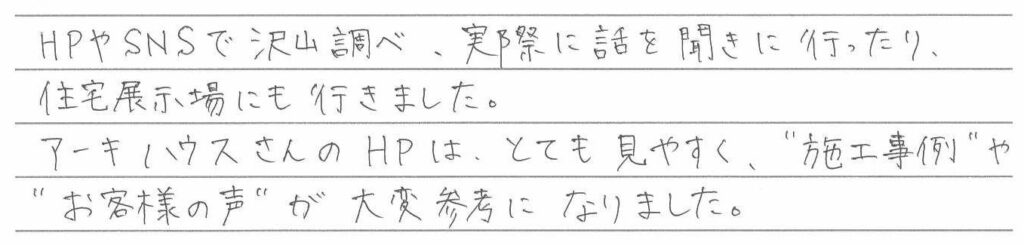 HPやSNSで沢山調べ、実際に話を聞きに行ったり、
住宅展示場にも行きました。
アーキハウスさんのHPは、とても見やすく、"施工事例"や
"お客様の声"が大変参考になりました。